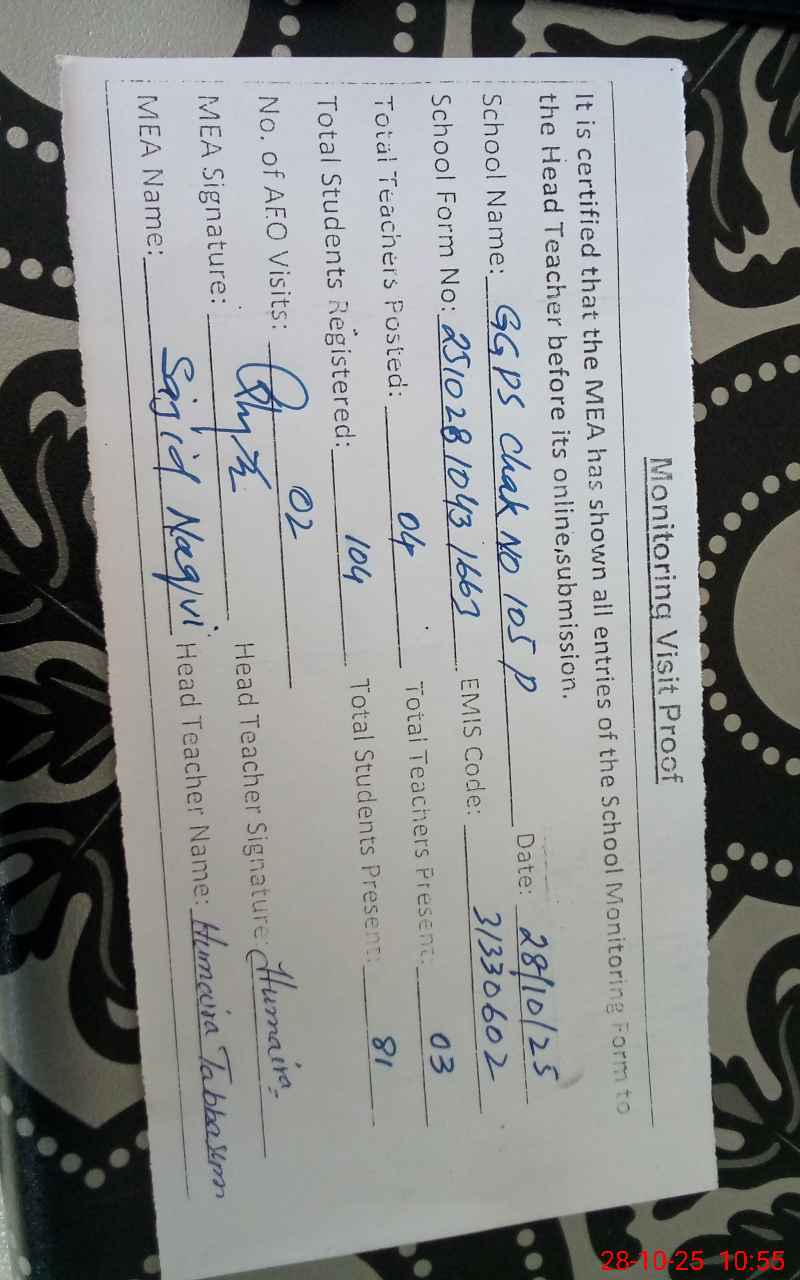 Monitoring Visit Proof
It is certified that the MEA has shown all entries of the School Monitoring Form to
the Head Teacher before its online,submission.
School Name: GGPS Chak No 105 P Date: 28/10/25
School Form No: 2510281043 1663 EMIS Code: 31330602
Total Teachers Posted: 04 Total Teachers Present: 03
Total Students Registered: 104 Total Students Present: 81
No. of AEO Visits: 02
MEA Signature: Head Teacher Signature: Humaira
MEA Name: Sajid Naqvi Head Teacher Name: Humaira Tabbasum
28-10-25 10:55